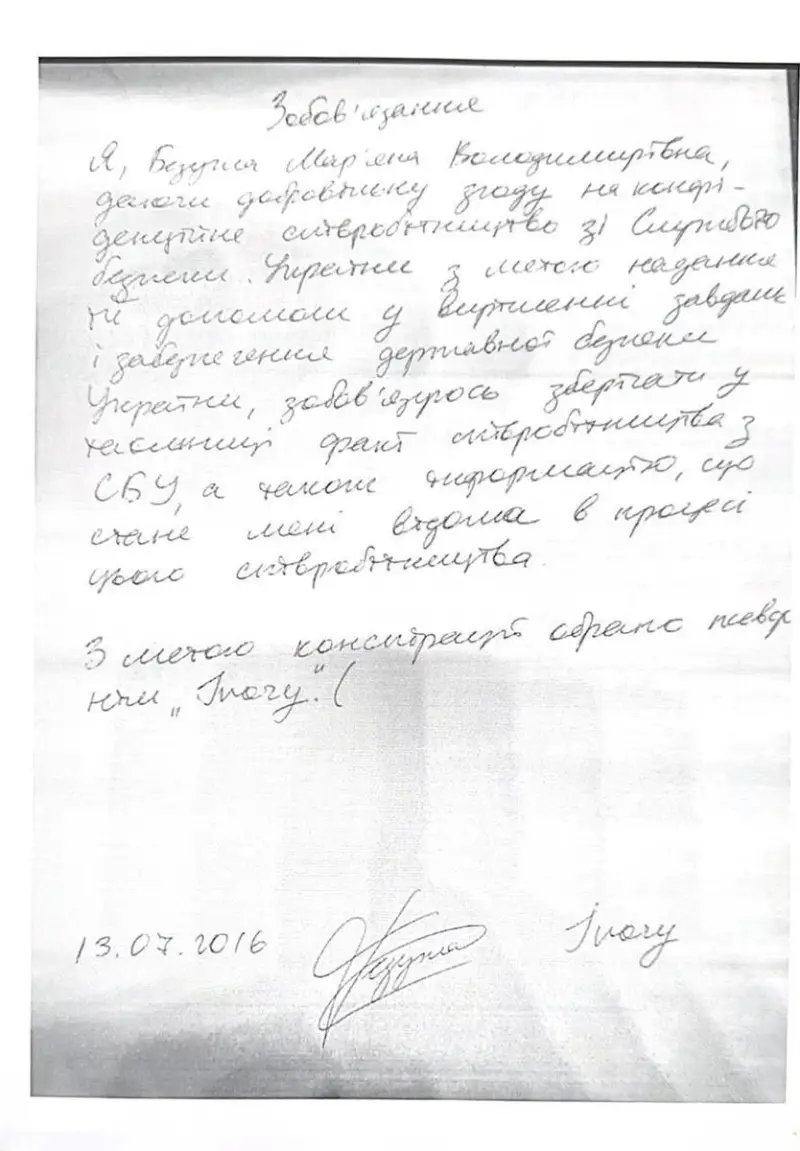 Зобов'язання
Я, Безугла Мар'яна Володимирівна,
даючи добровільну згоду на конфі-
денційне співробітництво зі Службою
безпеки України з метою надання
їй допомоги у вирішенні завдань
і забезпечення державної безпеки
України, зобов'язуюсь зберігати у
таємниці факт співробітництва з
СБУ, а також інформацію, що
стане мені відома в процесі
цього співробітництва.
З метою конспірації обрано псевдо
нім „Ivory".(
13.07.2016 Безугла Ivory